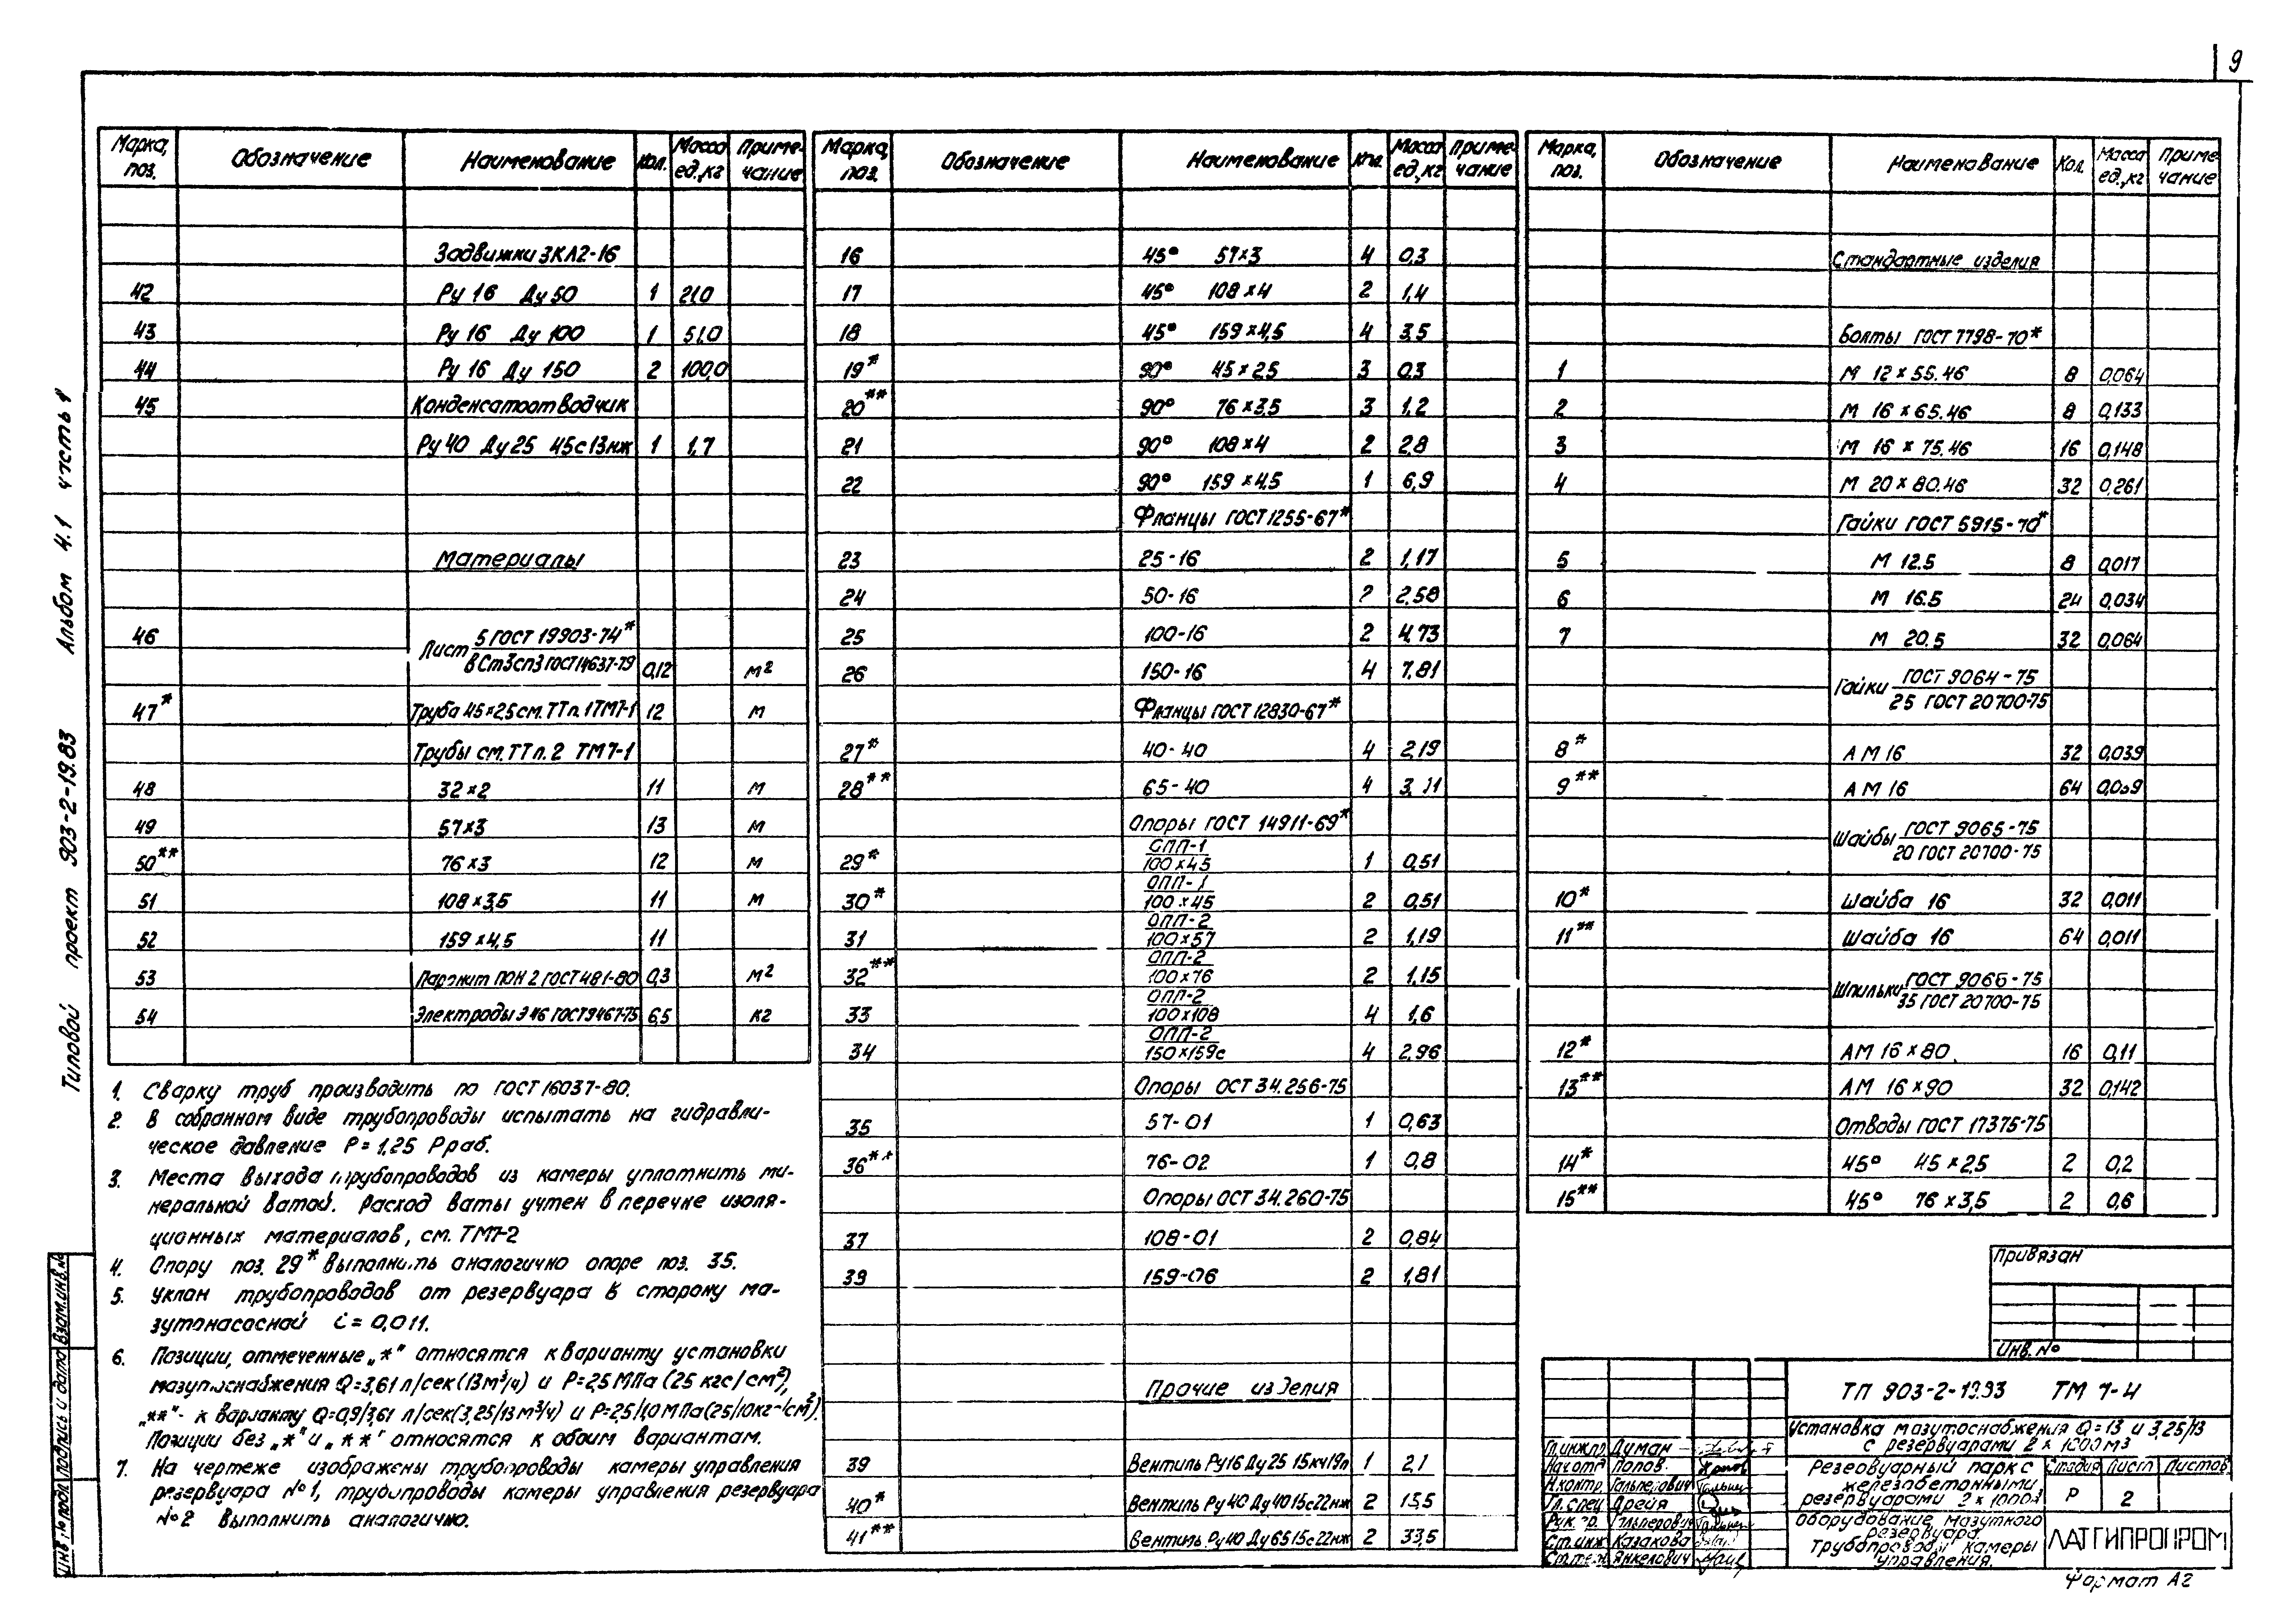 9
Типовой проект 903-2-19.83 Альбом 4.1 часть 1
Марка, поз. Обозначение Наименование Кол. Масса ед., кг Примечание
Задвижки ЗКЛ2-16
42 Ру 16 Ду 50 1 21,0
43 Ру 16 Ду 100 1 51,0
44 Ру 16 Ду 150 2 100,0
45 Конденсатоотводчик
Ру 40 Ду 25 45с13нж 1 1,7
Материалы
46 Лист 5 ГОСТ 19903-74*
ВСт3сп3 ГОСТ 14637-79 0,12 м2
47* Труба 45×2,5 см. ТТ п. 1 ТМ7-1 12 м
Трубы см. ТТ п. 2 ТМ7-1
48 32×2 11 м
49 57×3 13 м
50** 76×3 12 м
51 108×3,5 11 м
52 159×4,5 11
53 Паронит ПОН 2 ГОСТ 481-80 0,3 м2
54 Электроды Э 46 ГОСТ 9467-75 6,5 кг
1. Сварку труб производить по ГОСТ 16037-80.
2. В собранном виде трубопроводы испытать на гидравли-
ческое давление Р = 1,25 Рраб.
3. Места выхода трубопроводов из камеры уплотнить ми-
неральной ватой. Расход ваты учтен в перечне изоля-
ционных материалов, см. ТМ7-2
4. Опору поз. 29* выполнить аналогично опоре поз. 35.
5. Уклон трубопроводов от резервуара в сторону ма-
зутонасосной i = 0,011.
6. Позиции, отмеченные „*" относятся к варианту установки
мазутоснабжения Q=3,61 л/сек (13 м³/ч) и Р=2,5 МПа (25 кгс/см²),
„**"- к варианту Q=0,9/3,61 л/сек (3,25/13 м³/ч) и Р=2,5/1,0 МПа (25/10 кгс/см²).
Позиции без „*" и „**" относятся к обоим вариантам.
7. На чертеже изображены трубопроводы камеры управления
резервуара №1, трубопроводы камеры управления резервуара
№2 выполнить аналогично.
Марка, поз. Обозначение Наименование Кол. Масса ед., кг Примечание
16 45° 57×3 4 0,3
17 45° 108×4 2 1,4
18 45° 159×4,5 4 3,5
19* 90° 45×2,5 3 0,3
20** 90° 76×3,5 3 1,2
21 90° 108×4 2 2,8
22 90° 159×4,5 1 6,9
Фланцы ГОСТ 1255-67*
23 25-16 2 1,17
24 50-16 2 2,58
25 100-16 2 4,73
26 150-16 4 7,81
Фланцы ГОСТ 12830-67*
27* 40-40 4 2,19
28** 65-40 4
Опоры ГОСТ 14911-69*
29* ОПП-1
100×45 1 0,51
30* ОПП-1
100×45 2 0,51
31 ОПП-2
100×57 2 1,19
32** ОПП-2
100×76 2 1,15
33 ОПП-2
100×108 4 1,6
34 ОПП-2
150×159с 4 2,96
Опоры ОСТ 34.256-75
35 57-01 1 0,63
36** 76-02 1 0,8
Опоры ОСТ 34.260-75
37 108-01 2 0,84
39 159-06 2 1,81
Прочие изделия
39 Вентиль Ру16 Ду 25 15кч19п 1 2,1
40* Вентиль Ру 40 Ду 40 15с22нж 2 13,5
41** Вентиль Ру40 Ду65 15с22нж 2 33,5
Марка, поз. Обозначение Наименование Кол. Масса ед., кг Примечание
Стандартные изделия
Болты ГОСТ 7798-70*
1 М 12×55.46 8 0,064
2 М 16×65.46 8 0,133
3 М 16×75.46 16 0,148
4 М 20×80.46 32 0,261
Гайки ГОСТ 5915-70*
5 М 12.5 8 0,017
6 М 16.5 24 0,034
7 М 20.5 32 0,064
Гайки ГОСТ 9064-75
25 ГОСТ 20700-75
8* АМ 16 32 0,039
9** АМ 16 64 0,039
Шайбы ГОСТ 9065-75
20 ГОСТ 20700-75
10* Шайба 16 32 0,011
11** Шайба 16 64 0,011
Шпильки ГОСТ 9066-75
35 ГОСТ 20700-75
12* АМ 16×80 16 0,11
13** АМ 16×90 32 0,142
Отводы ГОСТ 17375-75
14* 45° 45×2,5 2 0,2
15** 45° 76×3,5 2 0,6
Привязан
Инв. №
ТП 903-2-19.83 ТМ 7-4
Установка мазутоснабжения Q=13 и 3,25/13
с резервуарами 2×1000м3
Гл.инж.пр. Думан
Нач.отд. Попов
Н.контр. Гальперович
Гл.спец. Дрейя
Рук.гр. Гальперович
Ст.инж. Казакова
Ст.тех. Янкелович
Резервуарный парк с
железобетонными
резервуарами 2×1000м3
Стадия Лист Листов
Р 2
Оборудование мазутного
резервуара.
Трубопроводы камеры
управления.
ЛАТГИПРОПРОМ
Формат А2
Инв.№ подл. Подпись и дата Взам.инв.№